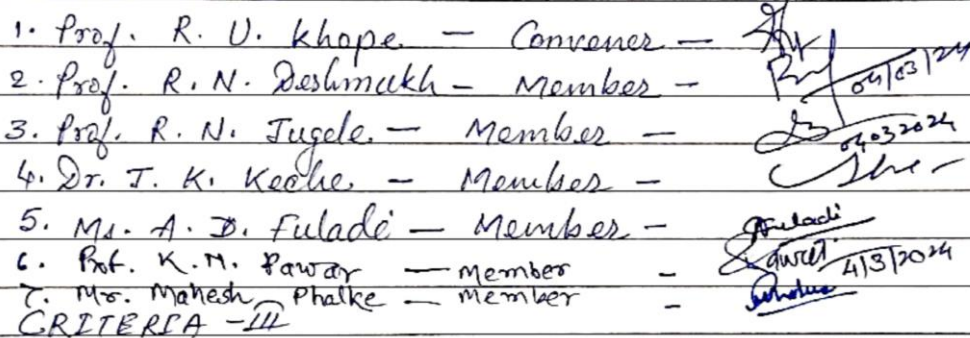 1. Prof. R. U. Khope — Convener —
2. Prof. R. N. Deshmukh — Member — 04/03/24
3. Prof. R. N. Jugele — Member — 04032024
4. Dr. J. K. Keche — Member —
5. Ms. A. D. Fuladi — Member — Fuladi
6. Prof. K. M. Pawar — Member — 4/3/2024
7. Mr. Mahesh Phalke — Member —
CRITERIA - III